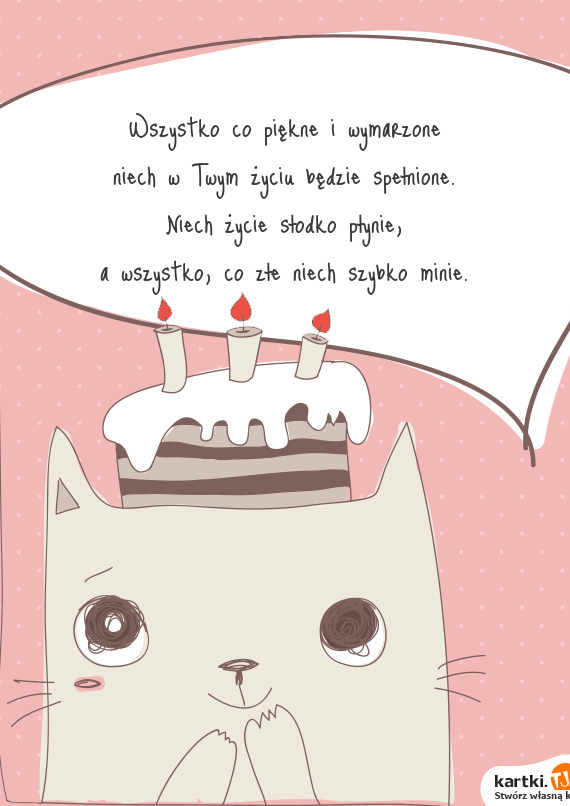 Wszystko co piękne i wymarzone
niech w Twym życiu będzie spełnione.
Niech życie słodko płynie,
a wszystko, co złe niech szybko minie.
kartki.TJ
Stwórz własną k